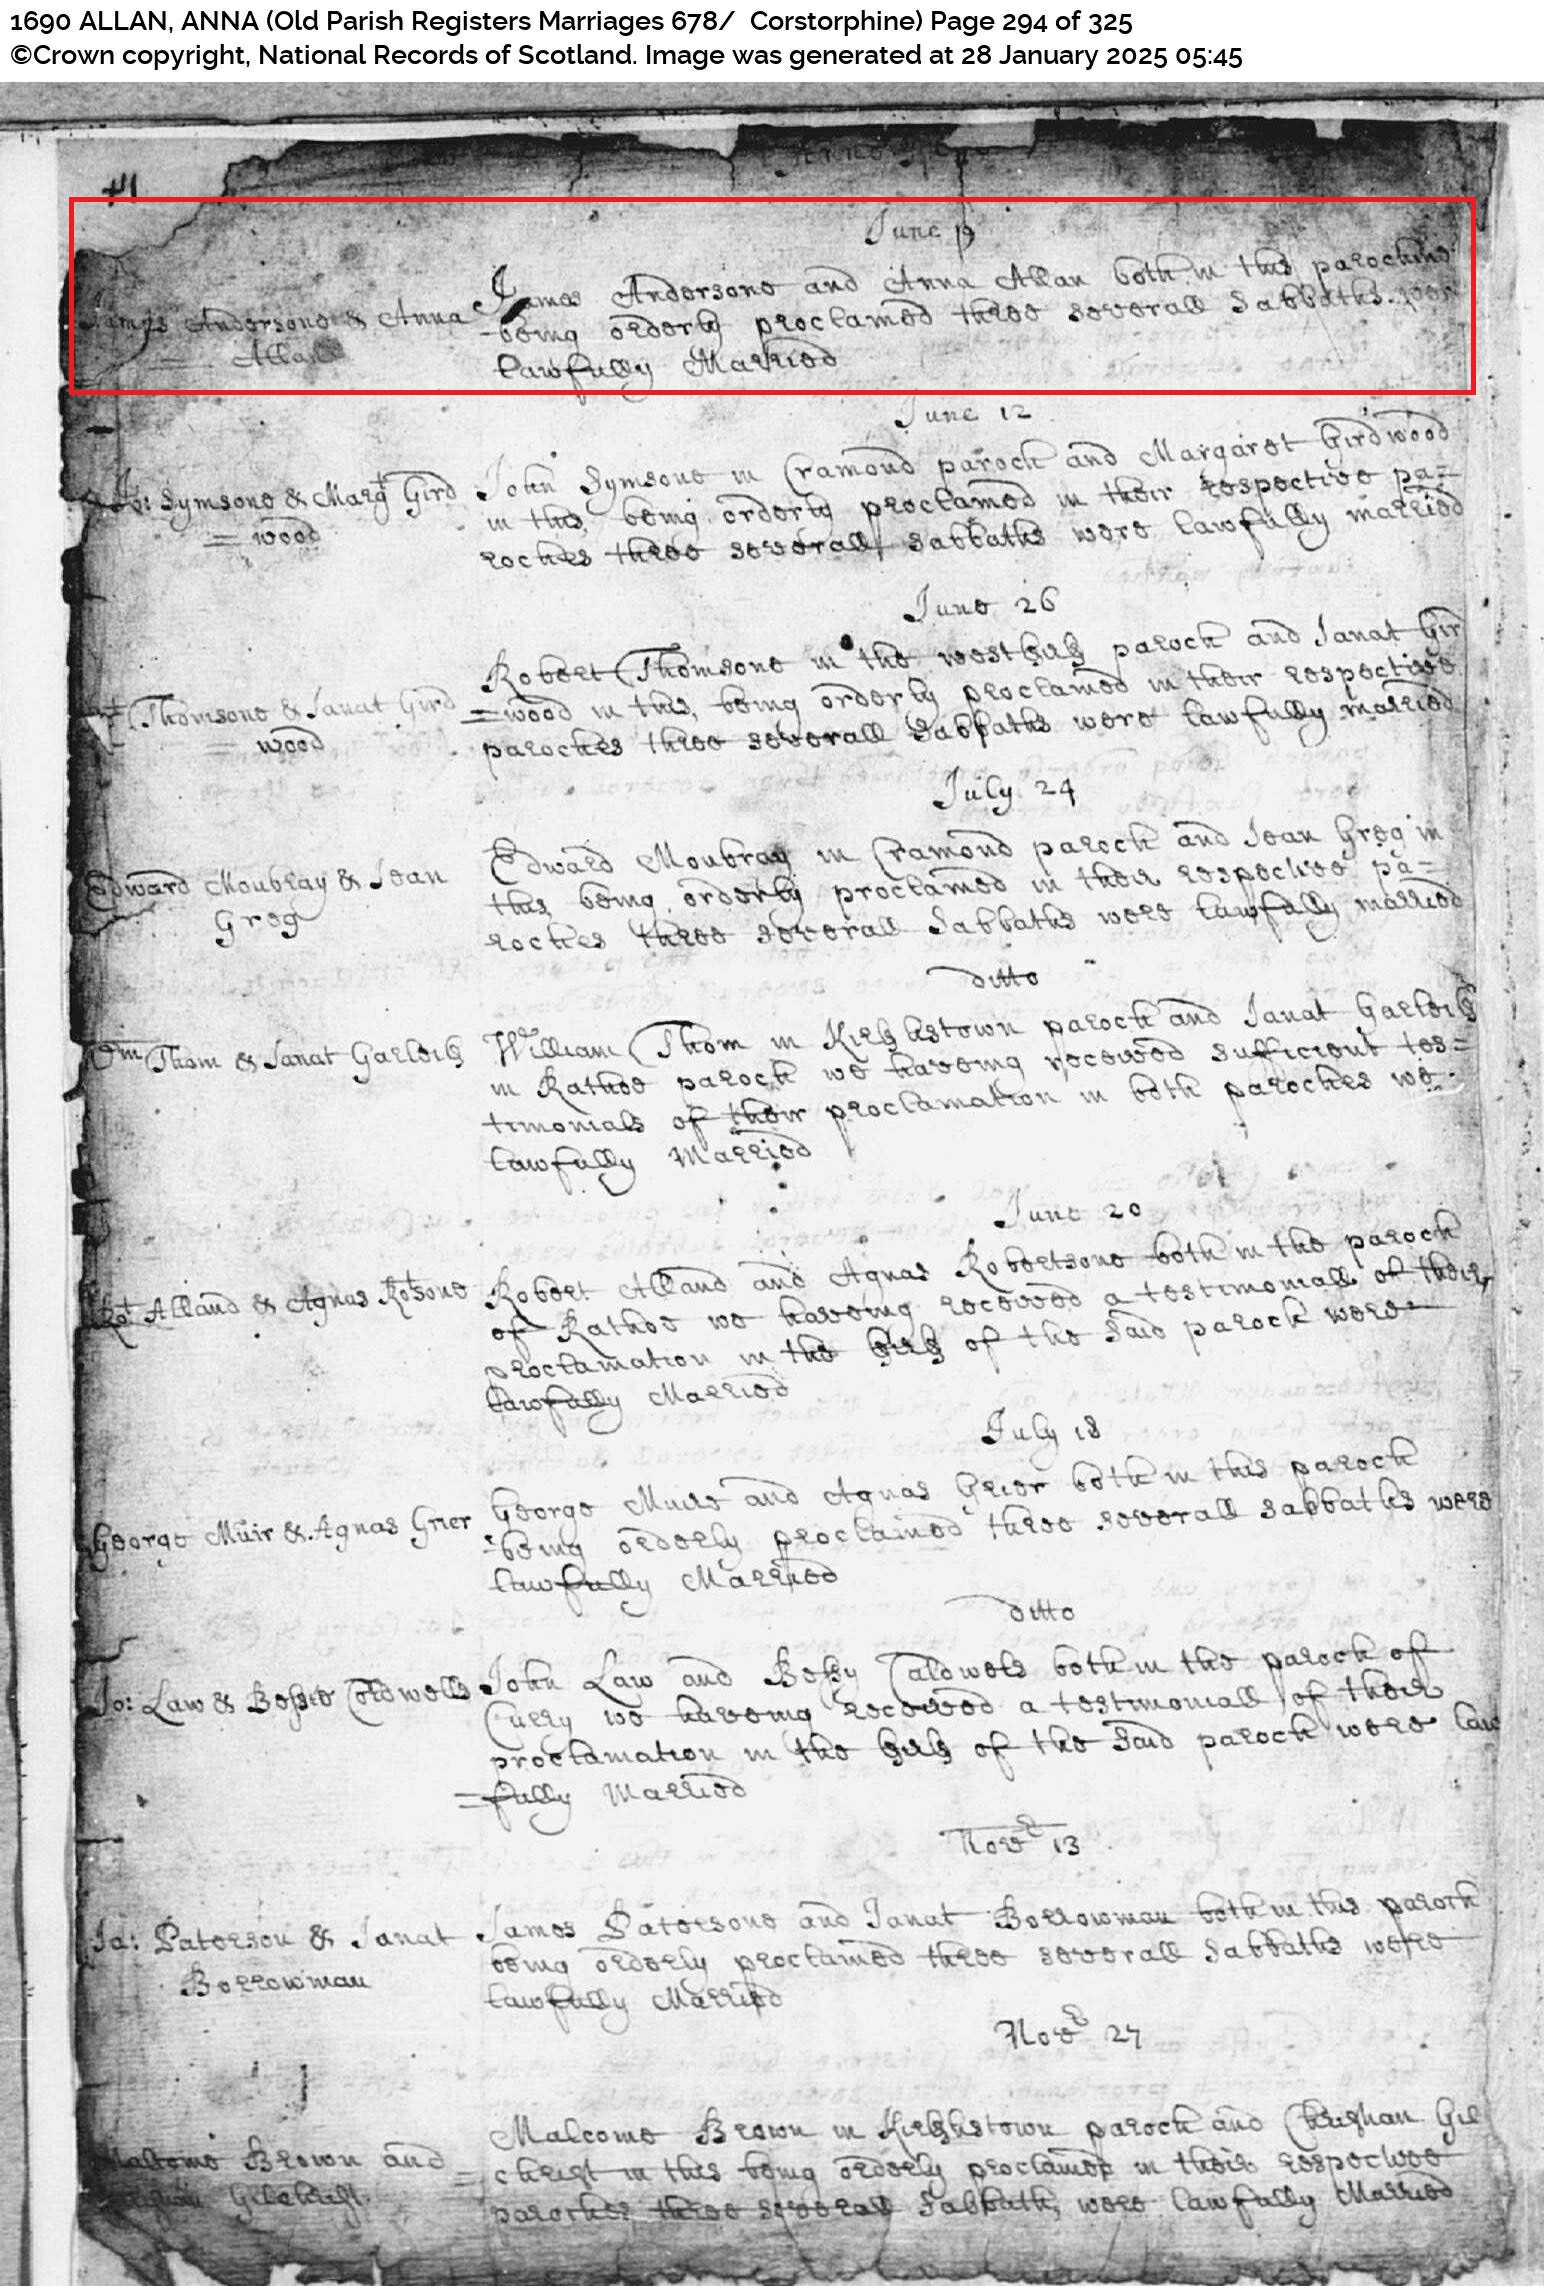 1690 ALLAN, ANNA (Old Parish Registers Marriages 678/ Corstorphine) Page 294 of 325
©Crown copyright, National Records of Scotland. Image was generated at 28 January 2025 05:45
Anno
June
James Andersone and Anna Allan both in this parochine
James Andersone & Anna
being orderly proclamed three severall Sabbaths wer
= Allan
lawfully Married
June 12
John Symsone in Cramond paroch and Margaret Girdwood
Jo: Symsone & Marg't Gird
in this, being orderly proclamed in their respective pa=
= wood
roches three severall Sabbaths were lawfully married
June 26
Robert Thomsone in the west kirk paroch and Janat Gir
Rt Thomsone & Janat Gird
=wood in this, being orderly proclamed in their respective
= wood
paroches three severall Sabbaths were lawfully married
July 24
Edward Moubray in Cramond paroch and Jean Greg in
Edward Moubray & Jean
this being orderly proclamed in their respective pa=
Greg
roches three severall Sabbaths were lawfully married
ditto
William Thom in Kirkliston paroch and Janat
Wm Thom & Janat
in Rathoe paroch we haveing receved sufficient tes=
timonials of their proclamation in both paroches we
lawfully Married
June 20
Robert Alland and Agnas Robertsone both in the paroch
Rot Alland & Agnas Rotsone
of Rathoe we haveing receved a testimoniall of their
proclamation in the kirk of the said paroch were
lawfully Married
July 18
George Muire and Agnas Grier both in this paroch
George Muir & Agnas Grier
being orderly proclaimed three severall Sabbaths were
lawfully Married
ditto
John Law and Bessy Caldwels both in the paroch of
Jo: Law & Bessie Coldwells
Curry we haveing receved a testimoniall of their
proclamation in the kirk of the said paroch were law
=fully Married
Novr 13
James Patersone and Janat Borrowman both in this paroch
Ja: Paterson & Janat
being orderly proclamed three severall Sabbaths were
Borrowman
lawfully Married
Novr 27
Malcome Brown in paroch and Christian Gil
Malcome Brown and
=christ in this being orderly proclamed in their respective
Gilchrist
paroches three severall Sabbaths were lawfully Married